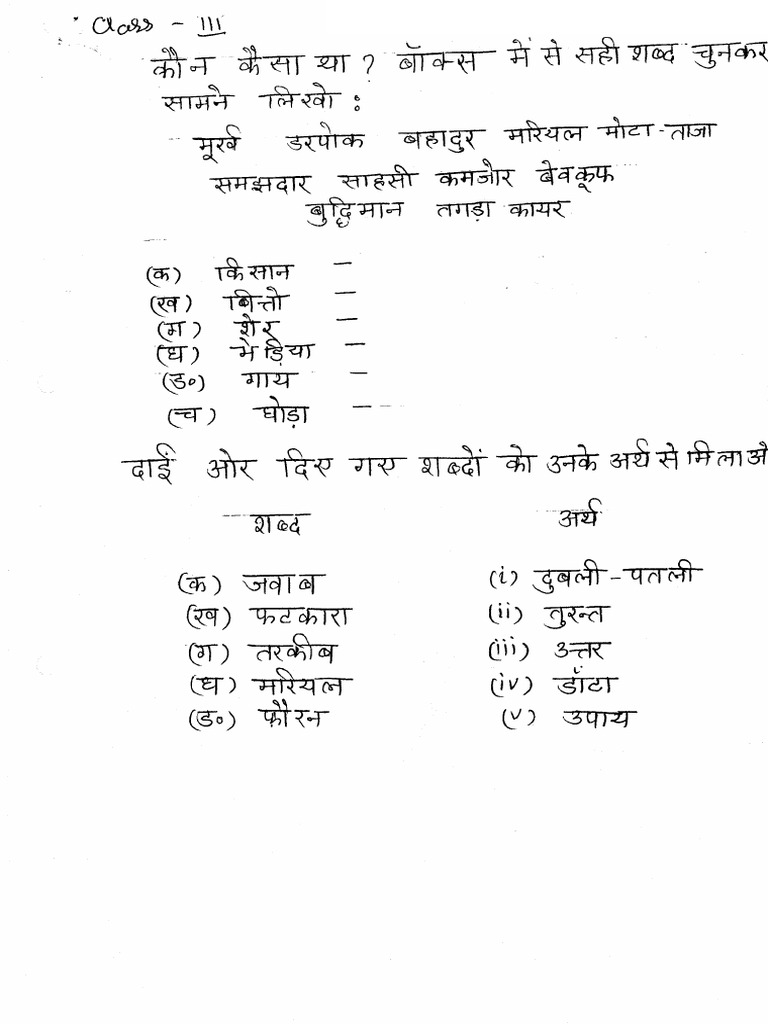 Class - III
कौन कैसा था ? बॉक्स में से सही शब्द चुनकर
सामने लिखो :
मूर्ख डरपोक बहादुर मरियल मोटा-ताजा
समझदार साहसी कमजोर बेवकूफ
बुद्धिमान तगड़ा कायर
(क) किसान –
(ख) बित्तो –
(ग) शेर –
(घ) भेड़िया –
(ड०) गाय –
(च) घोड़ा –
दाईं ओर दिए गए शब्दों को उनके अर्थ से मिलाओ
शब्द अर्थ
(क) जवाब (i) दुबली-पतली
(ख) फटकारा (ii) तुरन्त
(ग) तरकीब (iii) उत्तर
(घ) मरियल (iv) डाँटा
(ड०) फौरन (v) उपाय